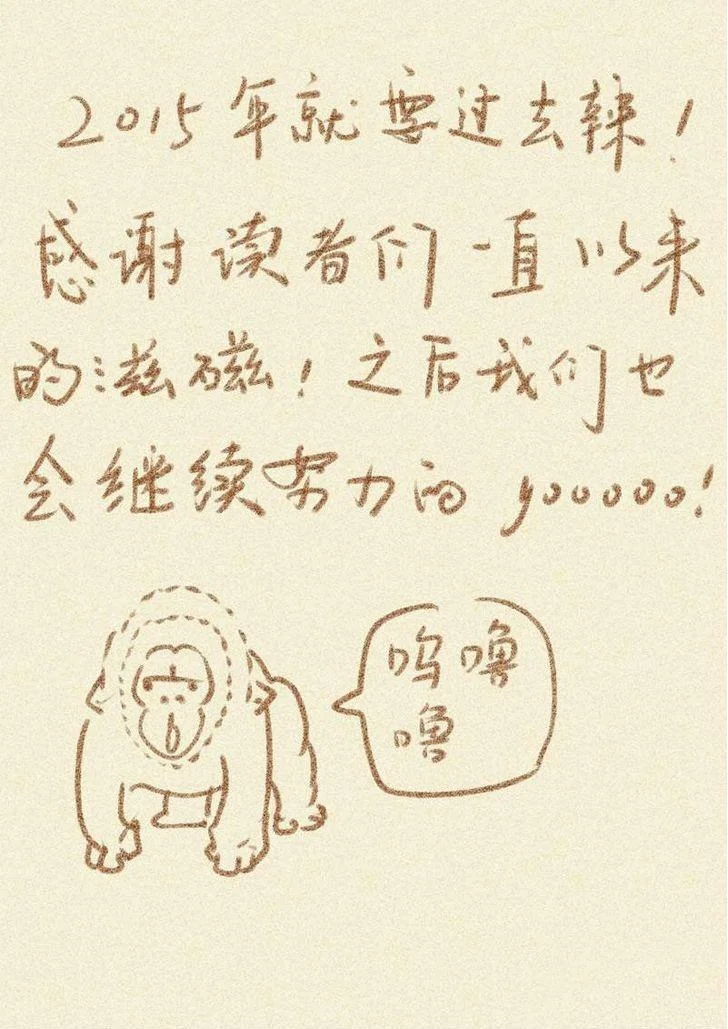 2015年就要过去辣！
感谢读者们一直以来
的滋磁！之后我们也
会继续努力的 yooooo！
呜噜
噜